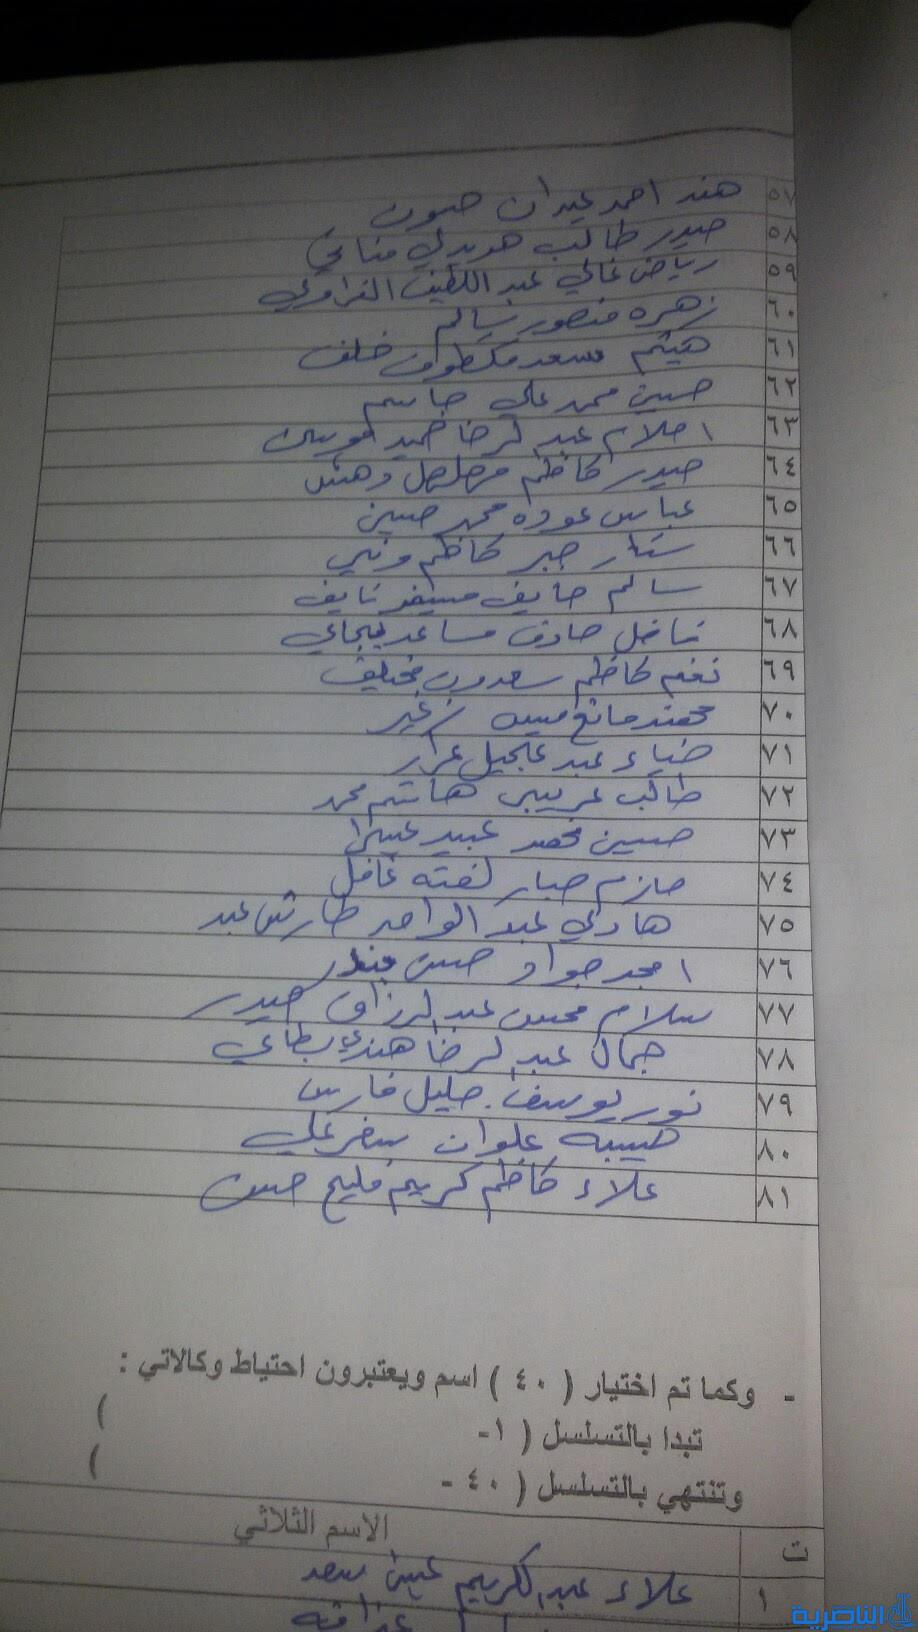 ٥٧ هند احمد عيدان حسون
٥٨ حيدر طالب هويدي مناتي
٥٩ رياض غالي عبد اللطيف
٦٠ زهره منصور سالم
٦١ هيثم مسعد مكطوف خلف
٦٢ حسين محمد علي جاسم
٦٣ احلام عبد الرضا حميد
٦٤ حيدر كاظم مهلهل
٦٥ عباس عوده محمد حسين
٦٦ ستار جبر كاظم وني
٦٧ سالم نايف
٦٨ فاضل صادق مساعد
٦٩ نغم كاظم سعدون
٧٠ مهند مانع
٧١ ضياء عبد
٧٢ طالب غريب هاشم محمد
٧٣ حسين محمد عبيد
٧٤ حازم جبار لفته غافل
٧٥ هادي عبد الواحد طارش عبد
٧٦ امجد جواد حسن بندر
٧٧ سلام محسن عبد الرزاق حيدر
٧٨ جمال عبد الرضا هندي
٧٩ نور يوسف خليل فارس
٨٠ حبيبه علوان علي
٨١ علاء كاظم كريم فليح حسن
- وكما تم اختيار ( ٤٠ ) اسم ويعتبرون احتياط وكالاتي :
تبدا بالتسلسل ( ١- )
وتنتهي بالتسلسل ( ٤٠ - )
ت الاسم الثلاثي
١ علاء عبد الكريم سعد
الناصرية